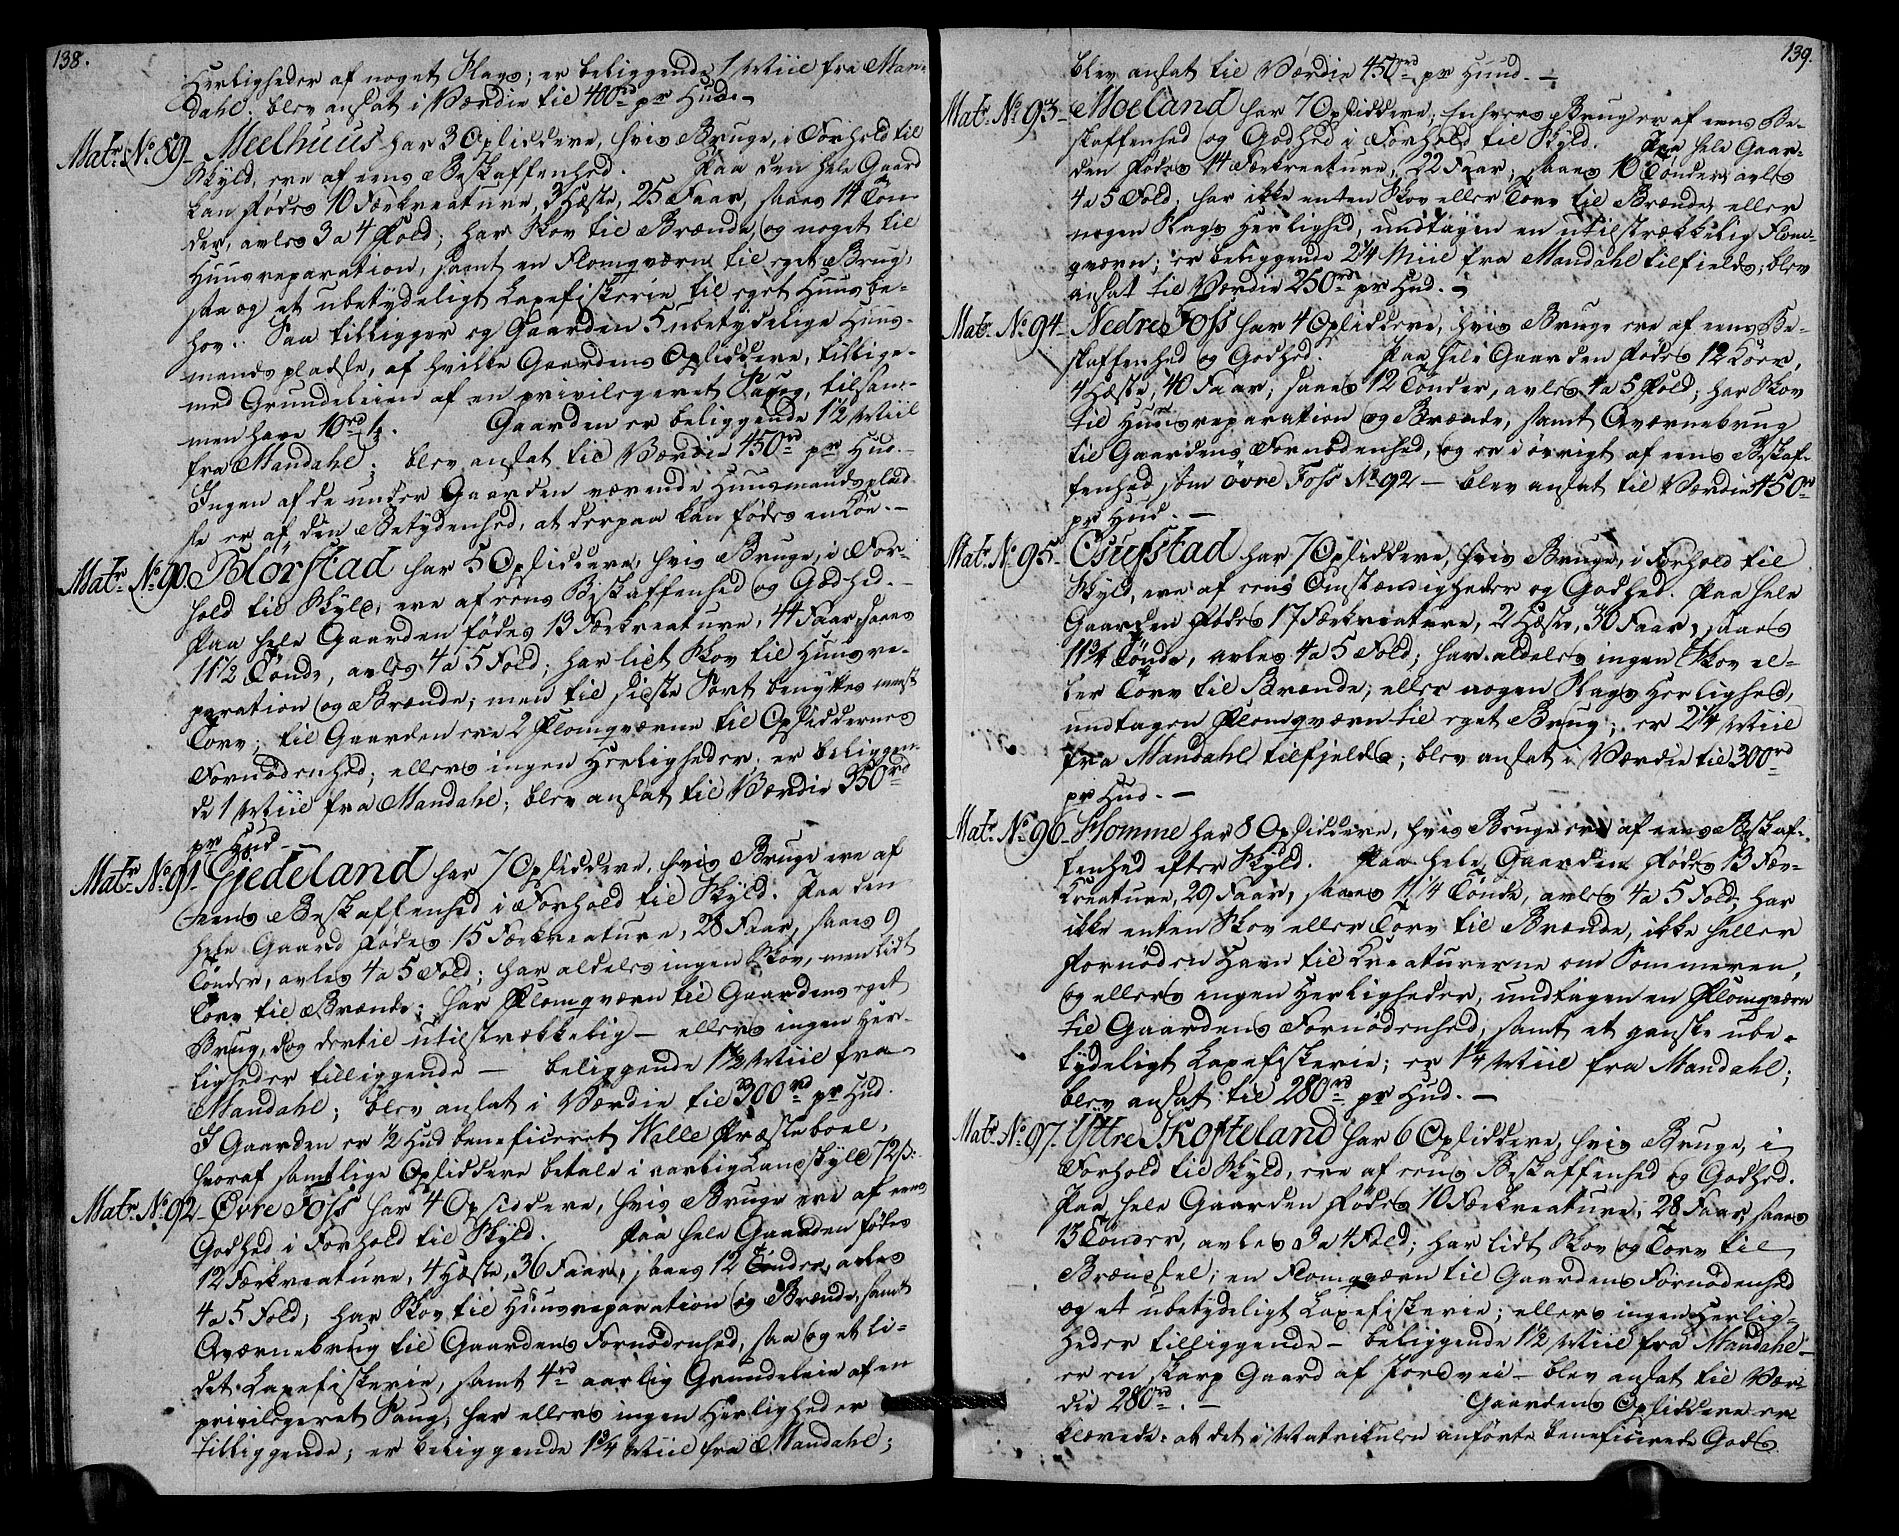 138.
Herligheder af noget Slags; er beliggende 1 Miil fra Man-
dahl; blev ansat i Værdie til 400rd pr Hud. –
Matr. No. 89. Meelhuus har 3 Opsiddere, hvis Bruge, i Forhold til
Skyld, ere af eens Beskaffenhed. Paa den hele Gaard
kan fødes 10 Fækreature, 3 Hæste, 25 Faar, saaes 14 Tøn-
der, avles 3 a 4 Fold; har Skov til Brænde, og noget til
Huusreparation, samt en Flomqværn til eget Brug,
saa og et ubetydeligt Laxefiskerie til eget Huusbe-
hov. Saa tilligger og Gaarden 5 ubetydelige Huus-
mandspladse, af hvilke Gaardens Opsiddere, tillige-
med Grundeleien af en privilegeret Saug, tilsam-
men have 10rd
Gaarden er beliggende 1 1/2 Miil
fra Mandahl; blev ansat til Værdie 450rd pr Hud. –
Ingen af de under Gaarden værende Huusmandsplad-
se er af den Betydenhed, at derpaa kan fødes en Koe. –
Matr. No. 90. Blørstad har 5 Opsiddere, hvis Bruge, i For-
hold til Skyld, ere af eens Beskaffenhed og Godhed. –
Paa hele Gaarden fødes 13 Fækreature, 44 Faar, saaes
11 1/2 Tønde, avles 4 a 5 Fold; har lidt Skov til Huusre-
paration og Brænde; men til sidste Sort benyttes meest
Torv; til Gaarden ere 2 Flomqværne til Opsiddernes
Fornødenhed; ellers ingen Herligheder; er beliggen-
de 1 Miil fra Mandahl; blev ansat til Værdie 350rd
pr Hud –
Matr. No. 91. Gjedeland har 7 Opsiddere, hvis Bruge ere af
eens Beskaffenhed i Forhold til Skyld. Paa den
hele Gaard fødes 15 Fækreature, 28 Faar, saaes 9
Tønder, avles 4 a 5 Fold; har aldeles ingen Skov, men lidt
Torv til Brænde; har Flomqværn til Gaardens eget
Brug, dog dertil utilstrækkelig – ellers ingen Her-
ligheder tilliggende – beliggende 1 1/2 Miil fra
Mandahl; blev ansat i Værdie til 300rd pr Hud.
I Gaarden er 1/2 Hud beneficeret Halle Præsteboel,
hvoraf samtlige Opsiddere betale i aarlig Landskyld 72 s:
Matr. No. 92. Øvre Foss har 4 Opsiddere, hvis Bruge ere af eens
Godhed i Forhold til Skyld. Paa hele Gaarden fødes
12 Fækreature, 4 Hæste, 36 Faar, saaes 12 Tønder, avles
4 a 5 Fold; har Skov til Huusreparation og Brænde, samt
Qværnebrug til Gaardens Fornødenhed, saa og et li-
det Laxefiskerie, samt 4rd aarlig Grundeleie af en
privilegeret Saug; har ellers ingen Herligheder
tilliggende; er beliggende 1 3/4 Miil fra Mandahl;
139.
blev ansat til Værdie 450rd pr Hud. –
Matr. No. 93. Moeland har 7 Opsiddere; enhvers Brug er af eens Be-
skaffenhed og Godhed i Forhold til Skyld. Paa hele Gaar-
den fødes 14 Fækreature, 22 Faar, saaes 10 Tønder, avles
4 a 5 Fold; har ikke enten Skov eller Torv til Brænde, eller
nogen Slags Herlighed, undtagen en utilstrækkelig Flom-
qværn; er beliggende 2 1/4 Miil fra Mandahl tilfields; blev
ansat til Værdie 250rd pr Hud. –
Matr. No. 94. Nedre Foss har 4 Opsiddere, hvis Bruge ere af eens Be-
skaffenhed og Godhed. Paa hele Gaarden fødes 12 Kører,
4 Hæste, 40 Faar; saaes 12 Tønder, avles 4 a 5 Fold; har Skov
til Huusreparation og Brænde, samt Qværnebrug
til Gaardens Fornødenhed, og er i øvrigt af eens Beskaf-
fenhed som øvre Foss No. 92 – blev ansat til Værdie 450rd
pr Hud. –
Matr. No. 95. Osufstad har 7 Opsiddere, hvis Bruge, i Forhold til
Skyld, ere af eens Omstændigheder og Godhed. Paa hele
Gaarden fødes 17 Fækreature, 2 Hæste, 30 Faar; saaes
11 3/4 Tønde, avles 4 a 5 Fold; har aldeles ingen Skov el-
ler Torv til Brænde; eller nogen Slags Herlighed,
undtagen Flomqværn til eget Brug; er 2 1/4 Miil
fra Mandahl tilfjelds; blev ansat i Værdie til 300rd
pr Hud. –
Matr. No. 96. Homme har 8 Opsiddere, hvis Bruge ere af eens Beskaf-
fenhed efter Skyld. Paa hele Gaarden fødes 13 Fæ-
Kreature, 29 Faar, saaes 11 1/4 Tønde, avles 4 a 5 Fold; har
ikke enten Skov eller Torv til Brænde, ikke heller
fornøden Havn til Kreaturerne om Sommeren,
og ellers ingen Herligheder, undtagen en Flomqværn
til Gaardens Fornødenhed, samt et ganske ube-
tydeligt Laxefiskerie; er 1 1/4 Miil fra Mandahl;
blev ansat til 280rd pr Hud. –
Matr. No. 97. Yttre Skofteland har 6 Opsiddere, hvis Bruge, i
Forhold til Skyld, ere af eens Beskaffenhed og Godhed.
Paa hele Gaarden fødes 10 Fækreature, 28 Faar, saaes
13 Tønder, avles 3 a 4 Fold; har lidt Skov og Torv til
Brændsel; en Flomqværn til Gaardens Fornødenhed
og et ubetydeligt Laxefiskerie; ellers ingen Herlig-
heder tilliggende – beliggende 1 1/2 Miil fra Mandahl –
er en skarp Gaard af Jordvei – blev ansat til Vær-
die 280rd. –
Gaardens Opsiddere er-
klærede: at det i Matrikulen anførte beneficerede Gods